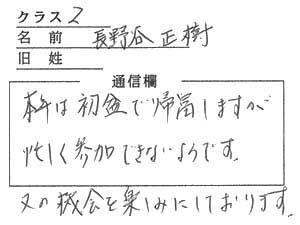 クラス 2
名前 長野谷 正樹
旧姓
通信欄
本年は初盆で帰省しますが
忙しく参加できないようです。
又の機会を楽しみにしております。